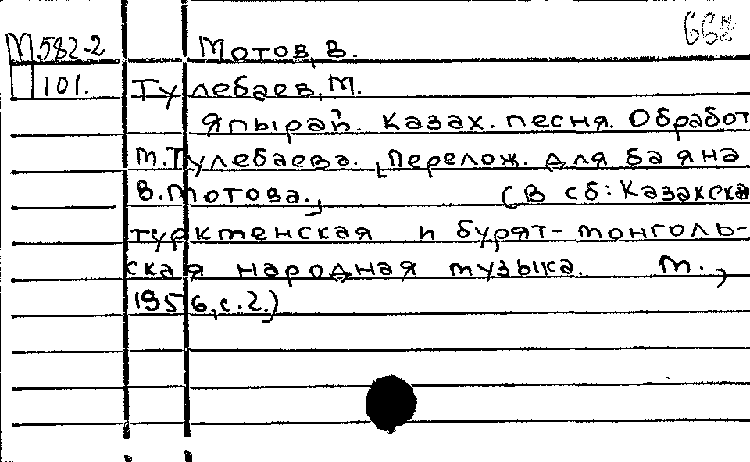 668
М.582-2 Мотов, В.
101. Тулебаев, М.
Япырай. Казах. песня. Обработ
М.Тулебаева. [Перелож. для баяна
В.Мотова.] (В сб: Казахска
туркменская и бурят-монголь-
ская народная музыка. М.,
1956, с.2.)